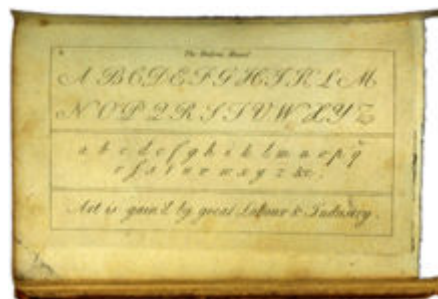 The Italian Hand
A B C D E F G H I K L M
N O P Q R S T U V W X Y Z
a b c d e f g h i k l m n o p q
r ſ s t u v w x y z &c.
Art is gain'd by great Labour & Industry.